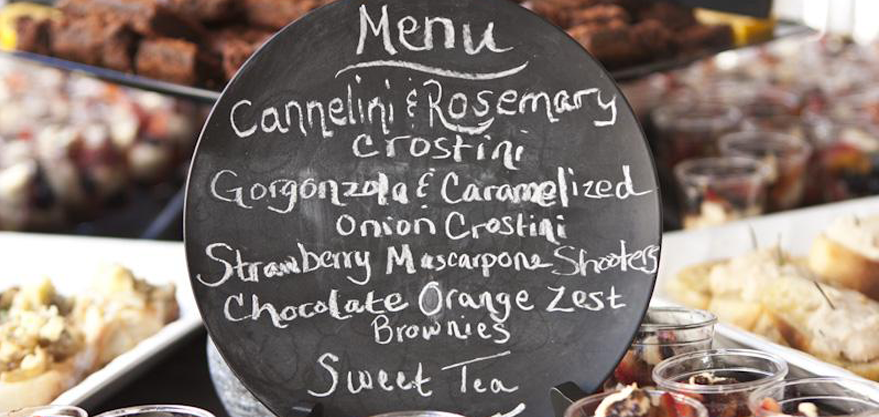 Menu
Cannelini & Rosemary
Crostini
Gorgonzola & Caramelized
Onion Crostini
Strawberry Mascarpone Shooters
Chocolate Orange Zest
Brownies
Sweet Tea